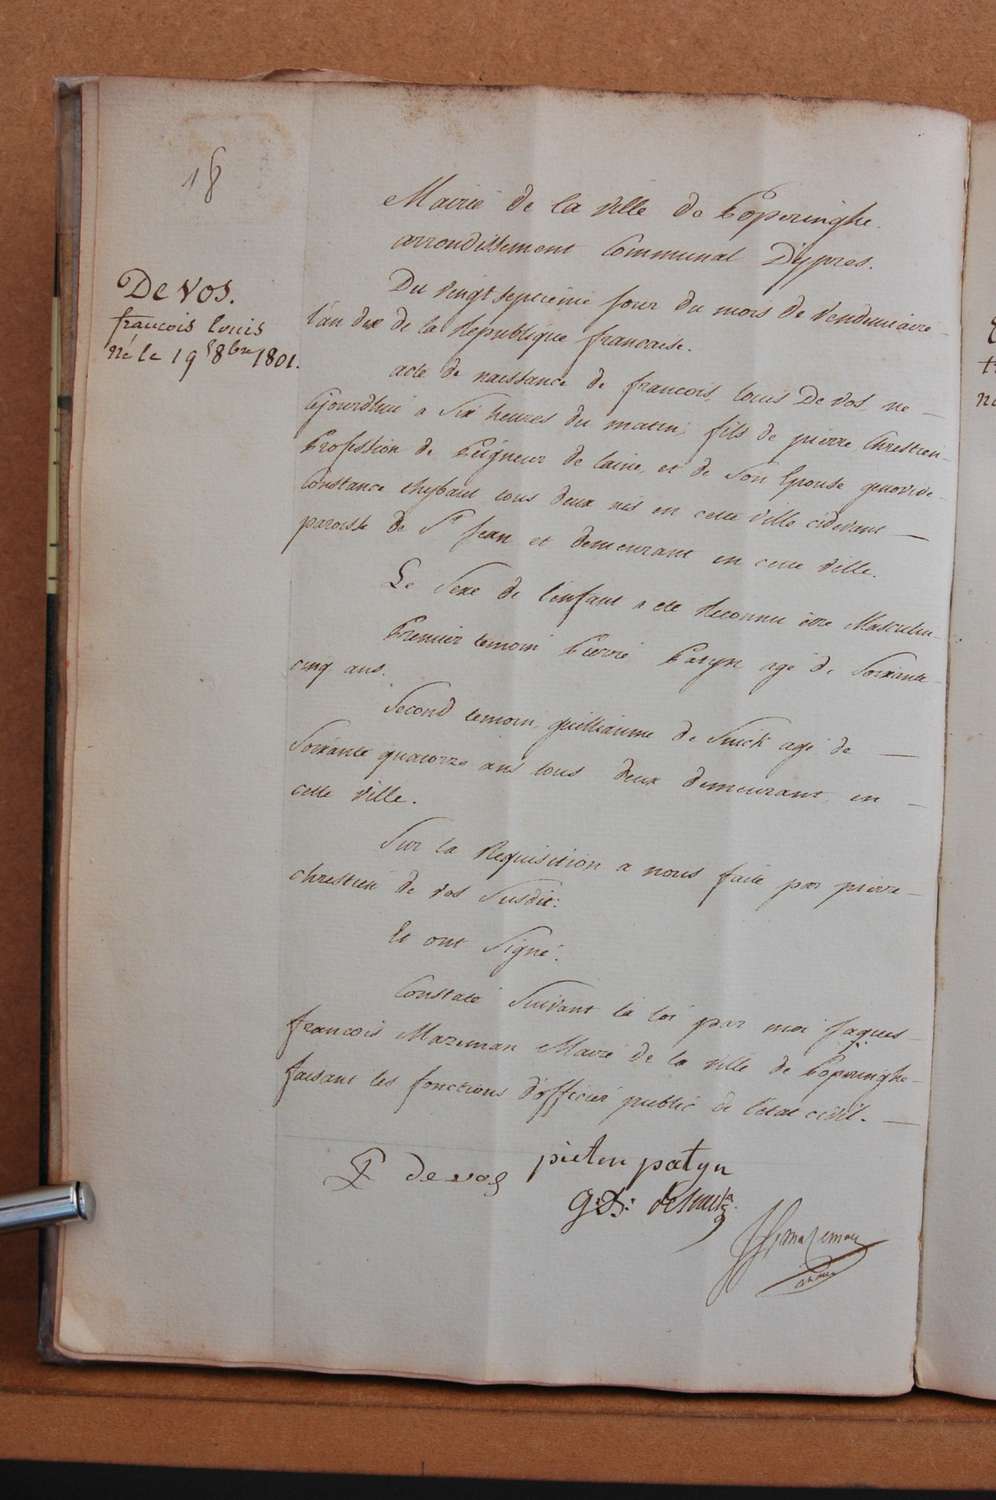 18
De Vos.
francois louis
né le 19 8bre 1801.
Mairie de la ville de Poperinghe.
arrondissement Communal D'ypres.
Du vingt septieme jour du mois de vendemiaire
l'an dix de la Republique francaise.
acte de naissance de francois louis De vos né
Cejourdhui a Six heures du matin, fils de pierre Chrestien
Profession de Peigneur de laine, et de Son Epouse genevieve
Constance thybaut tous deux nés en cette ville cidevant
paroisse de St Jean et demeurant en cette ville.
Le Sexe de l'enfant a été Reconnu être Masculin
Premier temoin Pierre Patyn agé de Soixante
cinq ans.
Second temoin, guilliaume de Smick agé de
Soixante quatorze ans tous deux demeurant en
cette ville.
Sur la Requisition a nous faite par pierre
chrestien de vos Susdit:
Et ont Signé:
Constaté Suivant la loi par moi Jaques
francois Mazeman Maire de la ville de Poperinghe
faisant les fonctions d'officier public de l'état civil.
P de vos
pieter patyn
J F mazeman